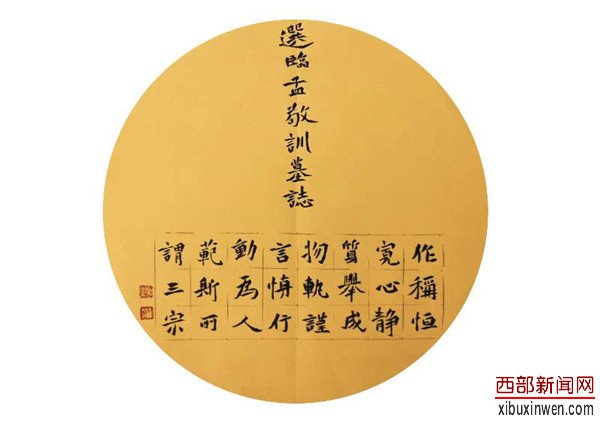 選臨孟敬訓墓誌
作稱恒
寬心静
質舉成
物軌謹
言慎行
動為人
範斯所
謂三宗
西部新闻网
xibuxinwen.com